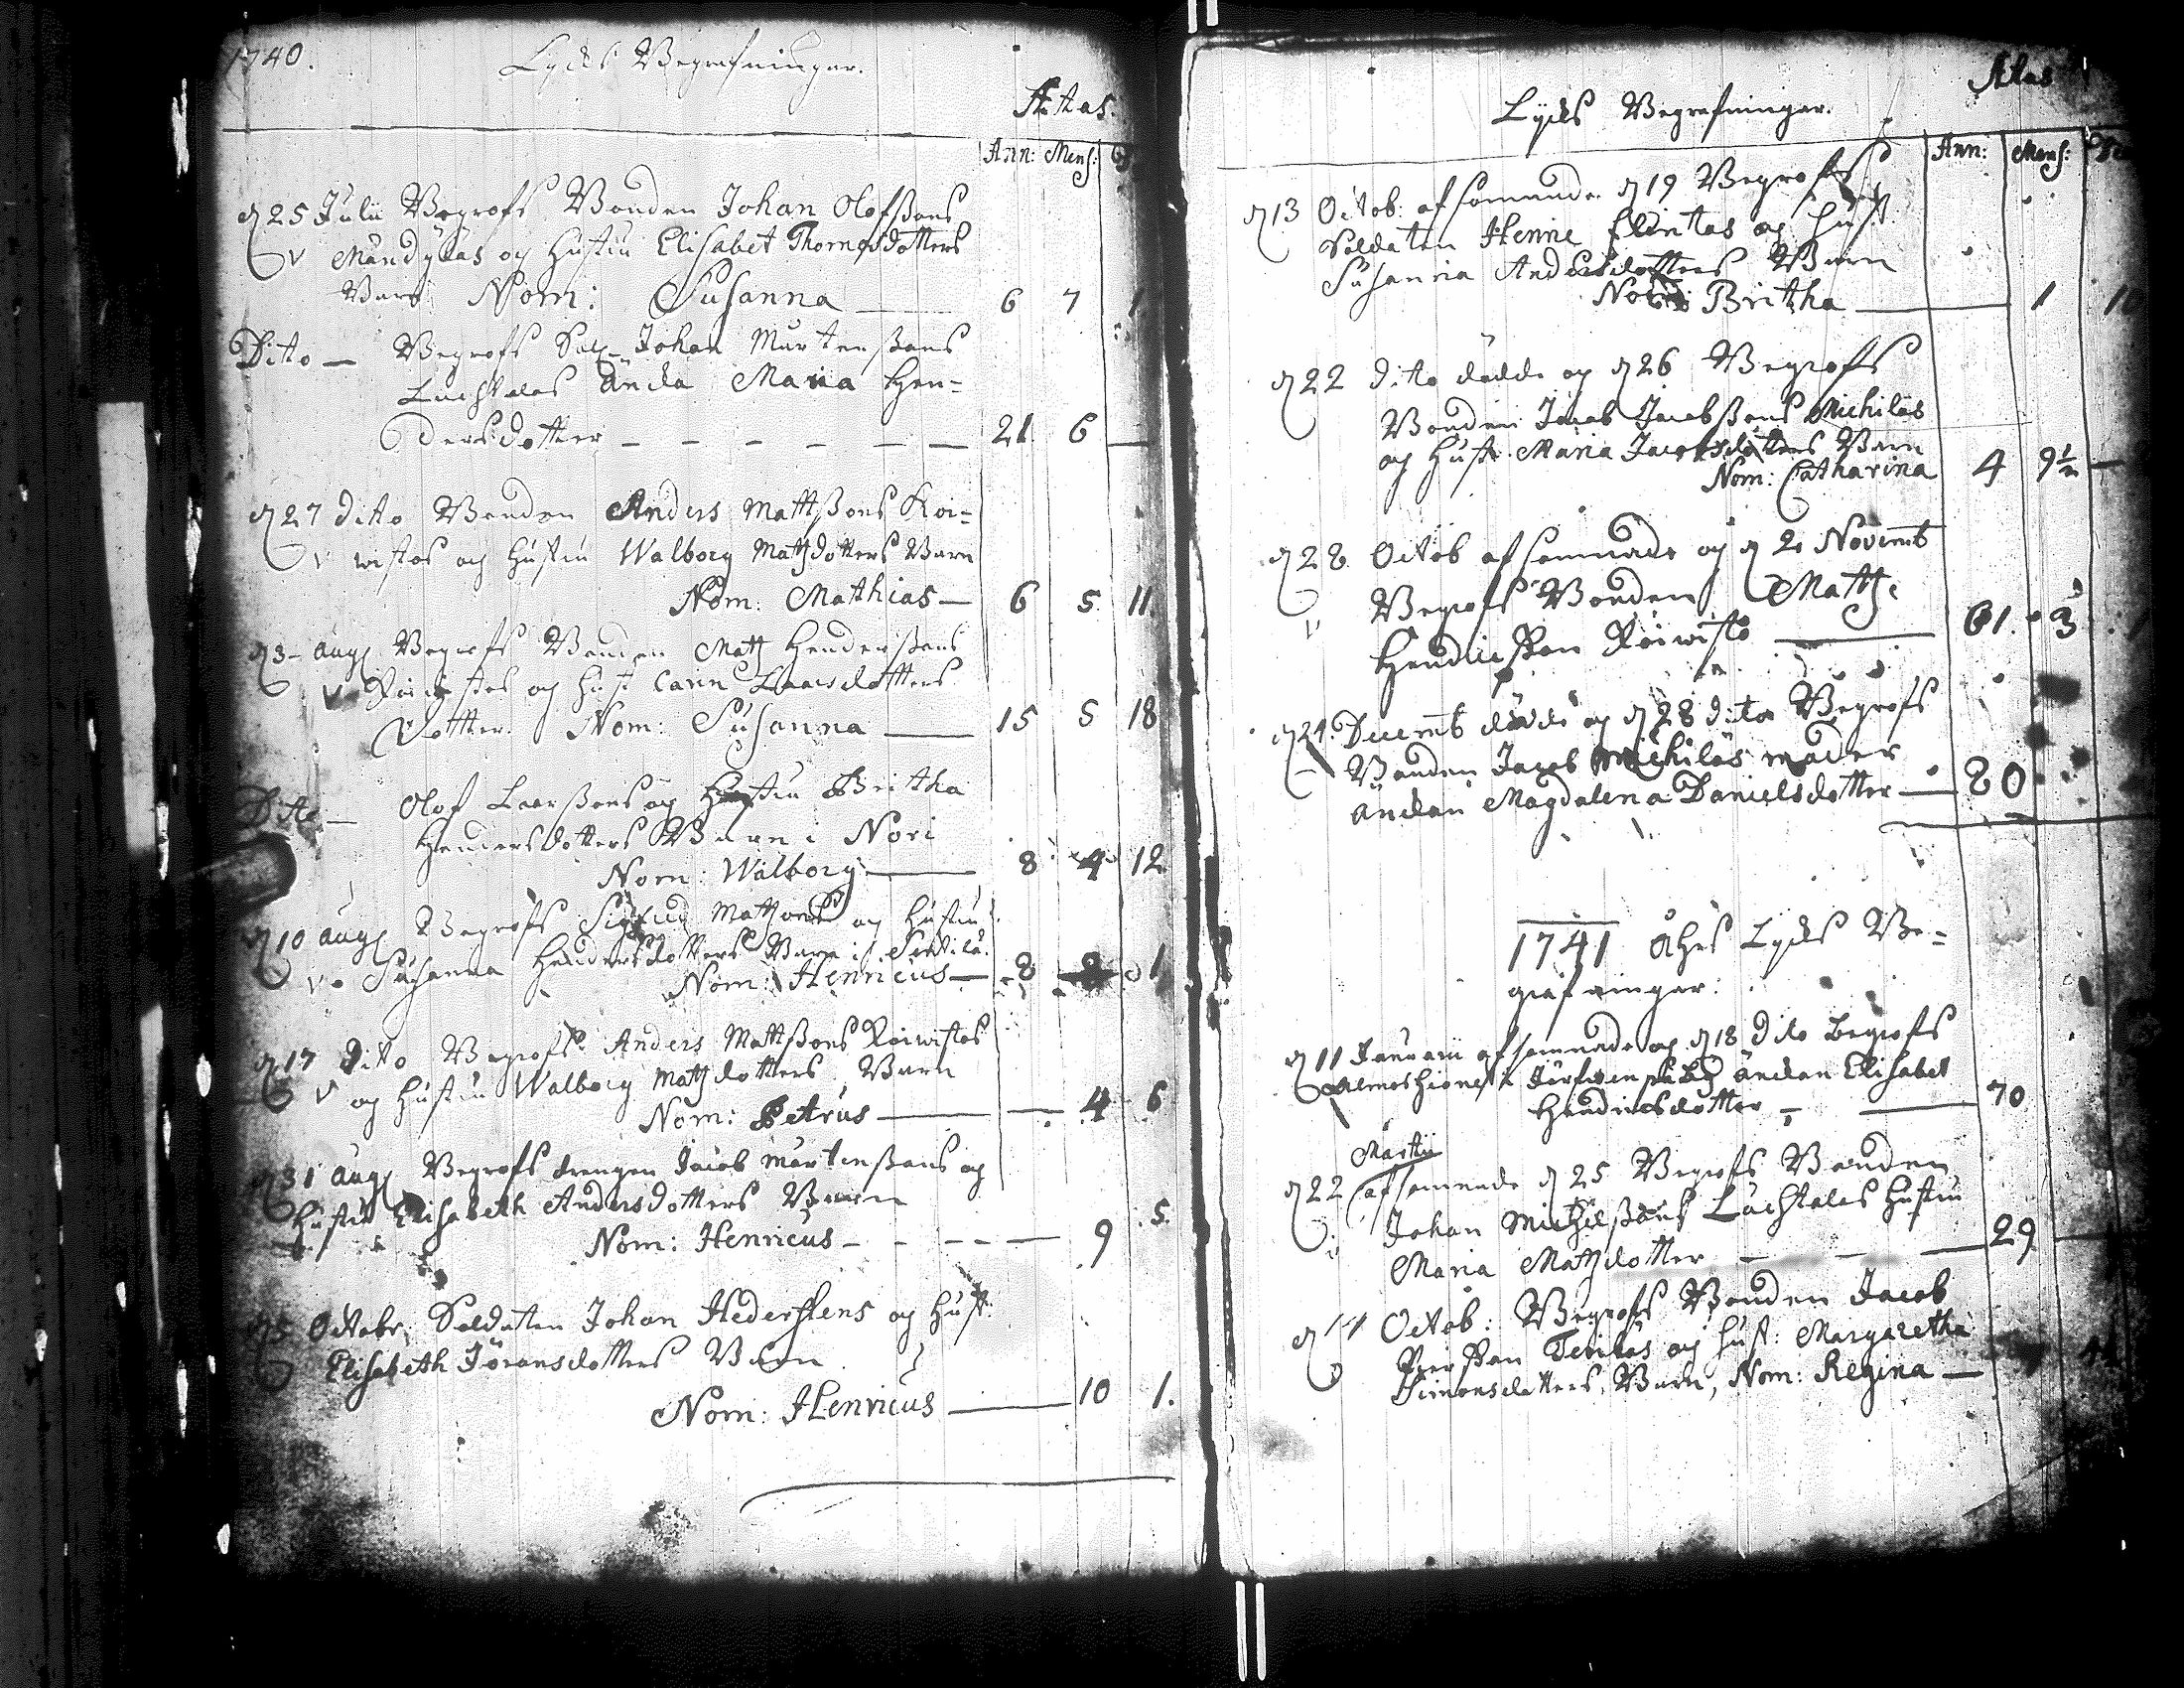 1740. Lijks Begrafningar.
Ætas.
Ann: Mens: D
d 25 Julii Begrofs Bonden Johan Olofssons
v Mandÿlas og Hustru Elisabet Thomasdotters
Barn Nom: Susanna — 6 7 1
Dito — Begrofs Sol Johan Mårtenssons
Lachtalas Äncka Maria Hen-
dersdotter — — — — — — 21 6 —
d 27 Dito Bonden Anders Mattssons Koi-
v wistos og Hustru Walborg Mattsdotters Barn
Nom: Mathias — 6 5 11
d 3 Aug Begrofs Bonden Matts Henderssons
v Koiwistos og Hust Carin Larsdotters
Dotter Nom: Susanna — 15 5 18
Dito — Olof Larssons og Hustru Britha
Hendersdotters Barn i Nori
Nom: Walborg — 8 4 12
d 10 Aug Begrofs Sigfrid Matssons og Hustru
v Susanna Hendersdotters Barn i
Nom: Henricus — 8 1
d 17 Dito Begrofs Anders Mattssons Koiwistos
v og Hustru Walborg Mattsdotters Barn
Nom: Petrus — — 4 6
d 31 Aug Begrofs drengen Jacob Mårtenssons og
Hustru Elisabeth Andersdotters Barn
Nom: Henricus — — — — 9 5.
d 5 Octobr, Soldaten Johan Hederstens og Hust:
Elisabeth Jöransdotters Barn
Nom: Henricus — 10 1.
Ætas
Lijks Begrafningar.
Ann: Mens: Die
d 13 Octob: afsomnade d 19 Begrofs
Soldaten Henric Flintas og Hust
Susanna Andersdotters Barn
Nom: Britha — 1
d 22 dito dödde og d 26 Begrofs
Bonden Jacob Jacobssons Michiläs
og Hust. Maria Jacobsdotters Barn
Nom: Catharina 4 9½ —
d 28 Octob afsomnade og d 2 Novemb
Begrofs Bonden Matts
v Hendricsson Koiwisto — 61. 3
d 24. Decemb dödde og d 28 dito Begrofs
Bonden Jacob Michiläs moder
änckan Magdalena Danielsdotter — 80
1741 åhrs Lijks Be-
grafningar:
d 11 Januarii afsomnade og d 18 Dito Begrofs
änckan Elisabet
Hendricsdotter — — 70
Martii
d 22 afsomnade d 25 Begrofs Bonden
Johan Michelssons Lachtalas Hustru
Maria Mattsdotter — — — 29 —
d 14 Octob: Begrofs Bonden Jacob
og Hust: Margaretha
Simonsdotters Barn, Nom: Regina —